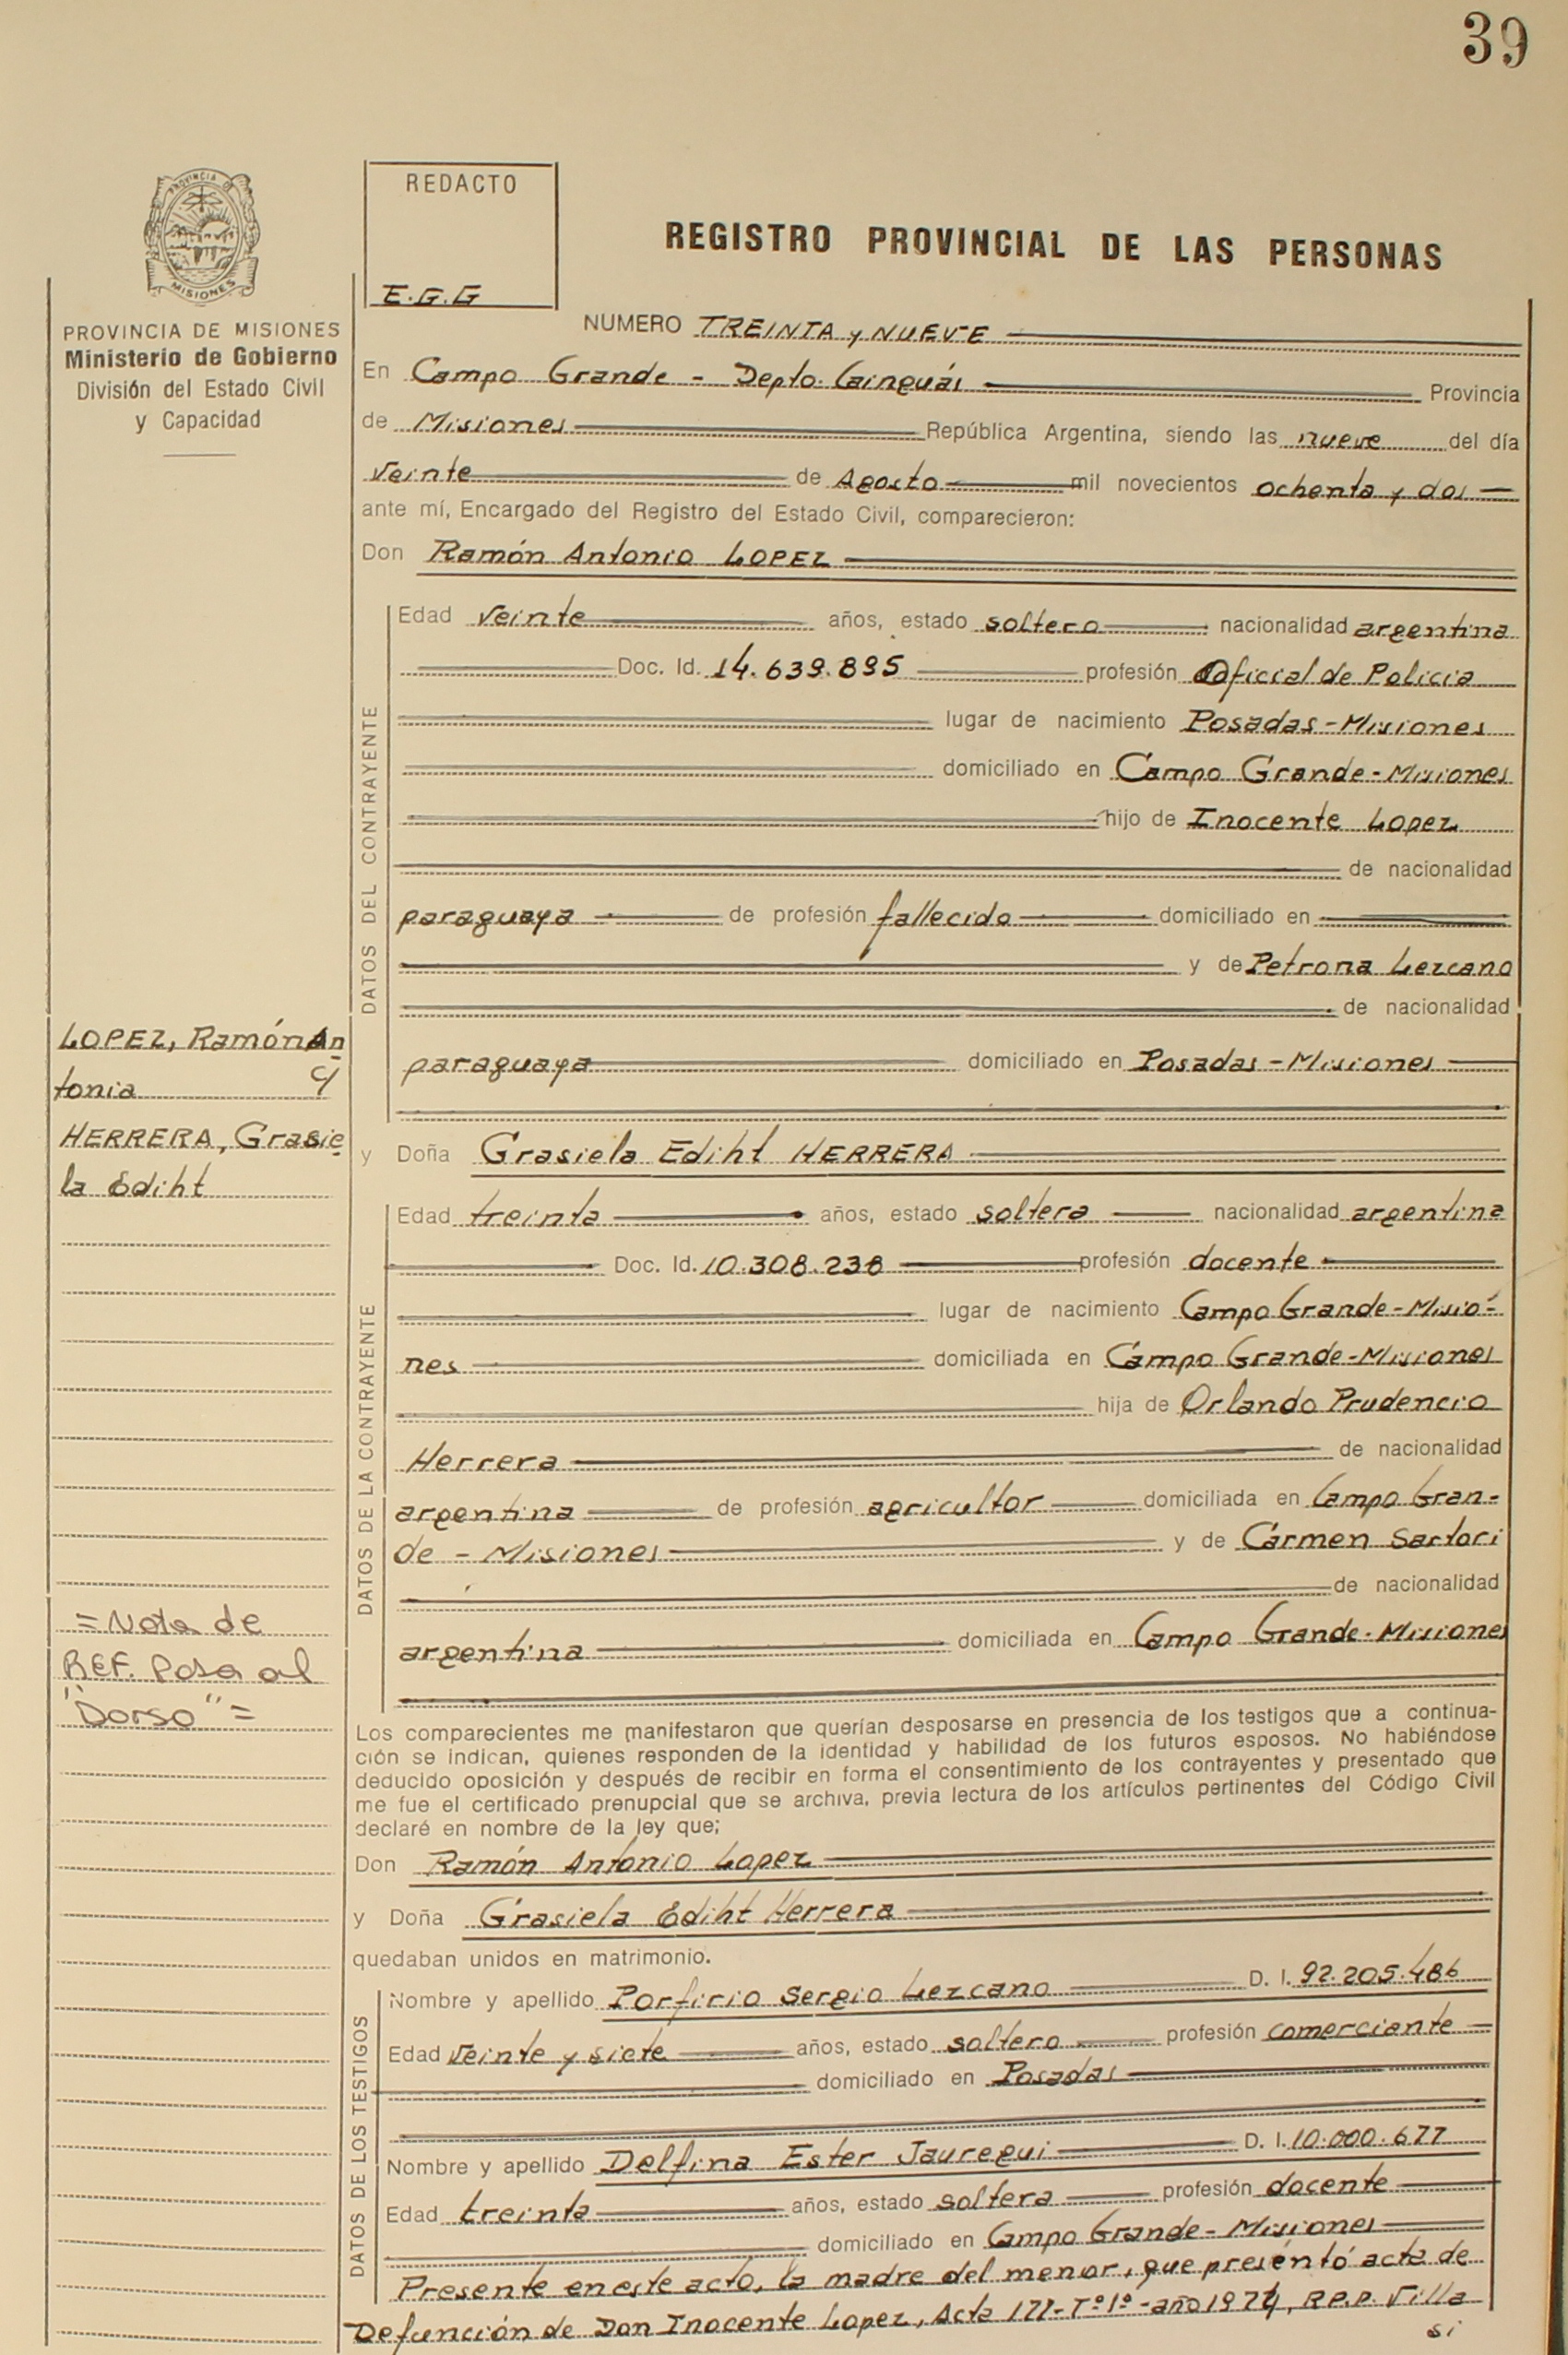 39
PROVINCIA DE
MISIONES
PROVINCIA DE MISIONES
Ministerio de Gobierno
División del Estado Civil
y Capacidad
REDACTO
E.G.G
REGISTRO PROVINCIAL DE LAS PERSONAS
NUMERO TREINTA y NUEVE
En Campo Grande - Depto. Cainguás Provincia
de Misiones República Argentina, siendo las nueve del día
veinte de Agosto mil novecientos ochenta y dos
ante mí, Encargado del Registro del Estado Civil, comparecieron:
Don Ramón Antonio LOPEZ
DATOS DEL CONTRAYENTE
Edad veinte años, estado soltero nacionalidad argentina
Doc. Id. 14.639.895 profesión Oficial de Policia
lugar de nacimiento Posadas-Misiones
domiciliado en Campo Grande-Misiones
hijo de Inocente Lopez
de nacionalidad
paraguaya de profesión fallecido domiciliado en
y de Petrona Lezcano
de nacionalidad
paraguaya domiciliado en Posadas-Misiones
LOPEZ, Ramón An
tonio y
HERRERA, Grasie
la Ediht
y Doña Grasiela Ediht HERRERA
DATOS DE LA CONTRAYENTE
Edad treinta años, estado soltera nacionalidad argentina
Doc. Id. 10.308.238 profesión docente
lugar de nacimiento Campo Grande-Misio-
nes domiciliada en Campo Grande-Misiones
hija de Orlando Prudencio
Herrera de nacionalidad
argentina de profesión agricultor domiciliada en Campo Gran-
de - Misiones y de Carmen Sartori
de nacionalidad
argentina domiciliada en Campo Grande-Misiones
=Nota de
REF. Pasa al
"Dorso"=
Los comparecientes me manifestaron que querían desposarse en presencia de los testigos que a continua-
ción se indican, quienes responden de la identidad y habilidad de los futuros esposos. No habiéndose
deducido oposición y después de recibir en forma el consentimiento de los contrayentes y presentado que
me fue el certificado prenupcial que se archiva, previa lectura de los artículos pertinentes del Código Civil
declaré en nombre de la ley que;
Don Ramón Antonio Lopez
y Doña Grasiela Ediht Herrera
quedaban unidos en matrimonio.
DATOS DE LOS TESTIGOS
Nombre y apellido Porfirio Sergio Lezcano D. I. 92.205.486
Edad veinte y siete años, estado soltero profesión comerciante
domiciliado en Posadas
Nombre y apellido Delfina Ester Jauregui D. I. 10.000.677
Edad treinta años, estado soltera profesión docente
domiciliado en Campo Grande-Misiones
Presente en este acto, la madre del menor, que presentó acta de
Defunción de Don Inocente Lopez, Acta 177-Tº1º-año 1974, R.P.P. Villa
si